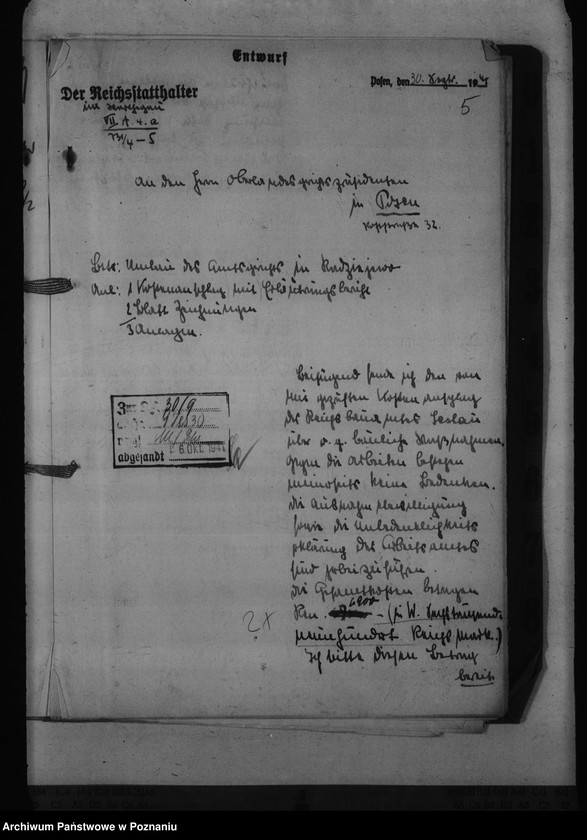 Entwurf
Der Reichsstatthalter
im Warthegau
VII A. 4. a
Posen, den 30. Septr. 194
5
An den Herrn Oberlandesgerichtspräsidenten
in Posen
32.
Betr: Umbau des Amtsgerichts in Radziejewo
Anl: 1 Kostenanschlag mit Erläuterungsbericht
2 Blatt Zeichnungen
3 Anlagen.
Beifügend sende ich den von
mir geprüften Kostenanschlag
des Reichsbauamtes Leslau
über o. g. bauliche Maßnahmen.
Gegen die Arbeiten bestehen
meinerseits keine Bedenken.
Die Ausnahmebewilligung
sowie die Unbedenklichkeits
erklärung des Arbeitsamtes
sind herbeizuführen.
Die Gesamtkosten betragen
6900
(in W. Sechstausend
neunhundert Reichsmark.)
Ich bitte diesen Betrag
bereit
30/9
abgesandt 6. OKT. 194
2x
Archiwum Państwowe w Poznaniu